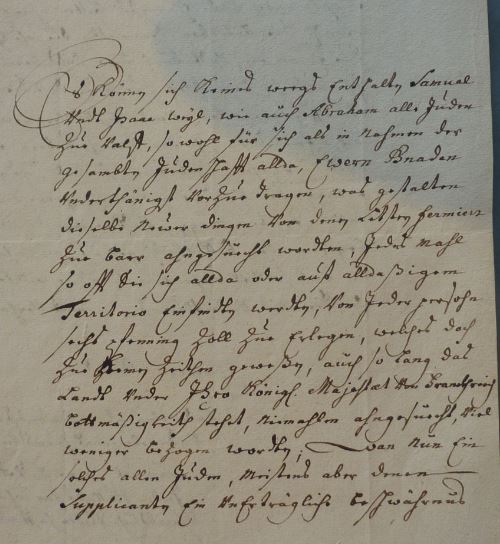 Es Können sich Keines weegs Enthalten Samuel
Undt Isaac weyl, wie auch Abraham alle Juden
zue Valff, so wohl für sich als in Nahmen der
gesambten Judenschafft allda, Ewern Gnaden
Underthänigst Vorzuetragen, was gestalten
dieselbe Neüer dingen Von denen Fermiers
zue Barr ahngesuecht wordten, Jedes mahl
so offt sie sich allda oder auff alldaßigem
Territorio Einfindten werdten, Von Jeder persohn
sechs pfenning Zoll zue Erlegen, welches doch
zue Keinen Zeithen geweßen, auch so lang das
Landt Under Ihro Königl. Majestät Von Franckreich
Bottmäßigkeith stehet, Niemahlen ahngesuecht, Viel
weniger bezogen wordten, wan Nun Ein
solches allen Juden, Meistens aber denen
Supplicanten Ein UnErträgliche beschwährnus